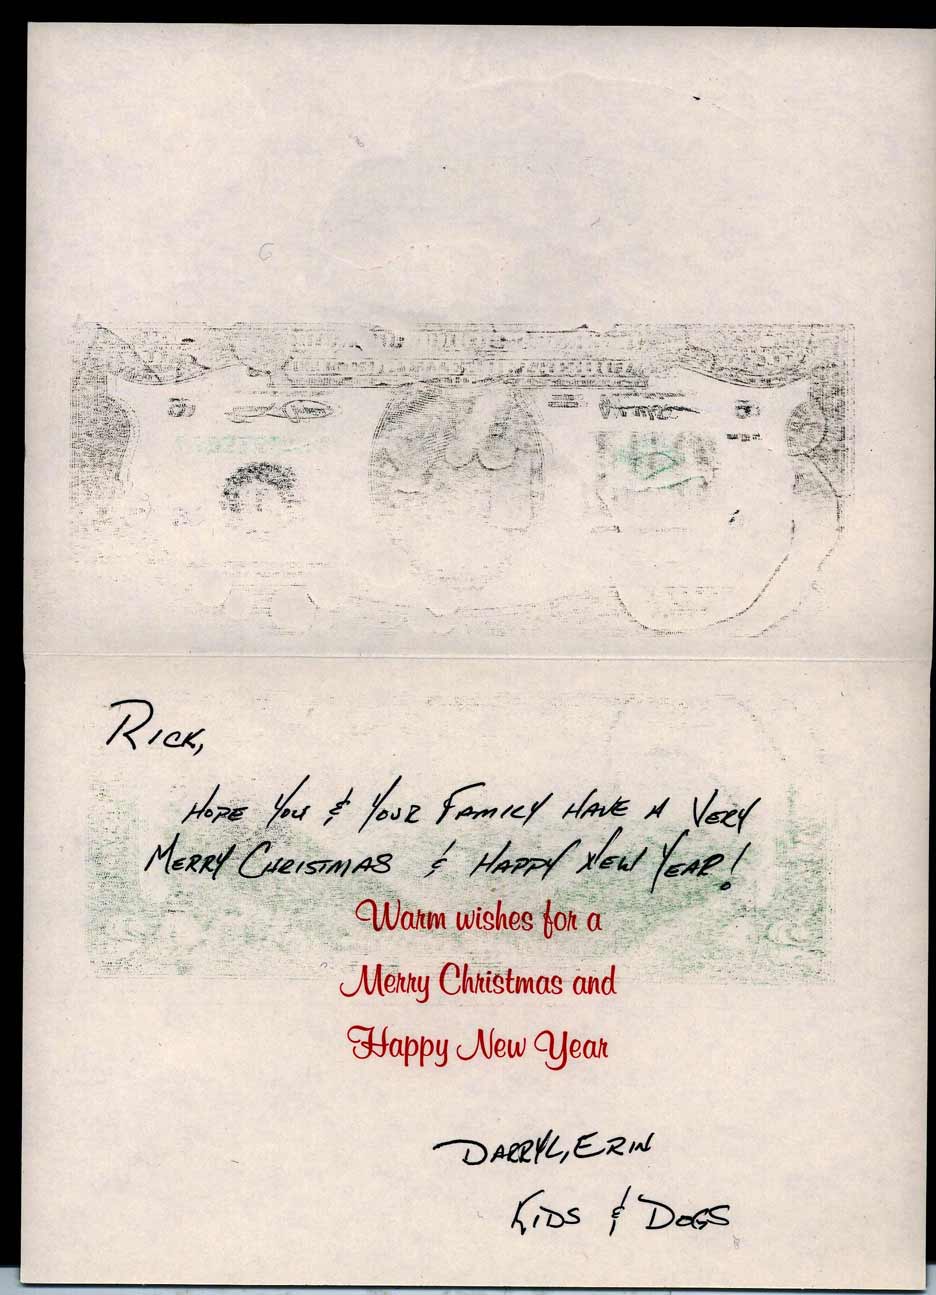 Rick,
Hope You & Your Family Have A Very
Merry Christmas & Happy New Year!
Warm wishes for a
Merry Christmas and
Happy New Year
Darryl, Erin
Kids & Dogs